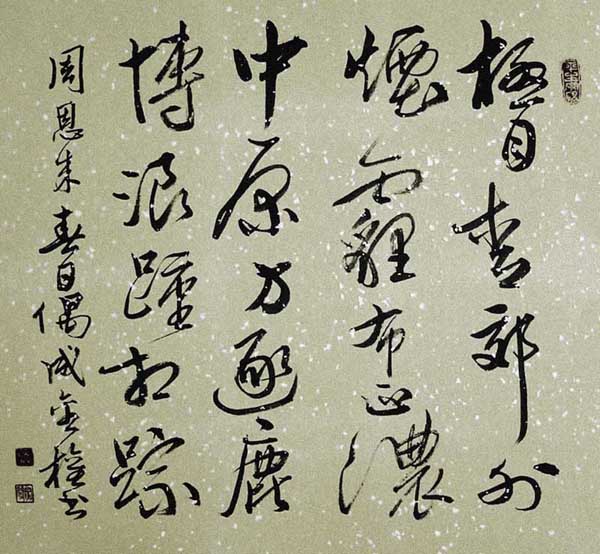 極目青郊外
煙霾布正濃
中原方逐鹿
博浪踵相踪
周恩来春日偶成